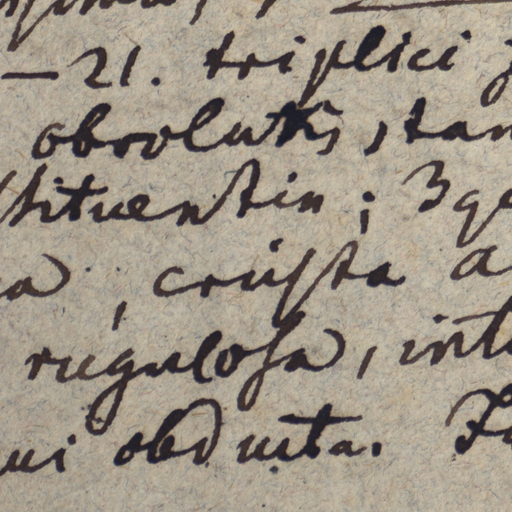 —21. triplici
obvolutis, tan
stituentia; 3ge
a, crusta a
rugulosa, int
ui obducta.